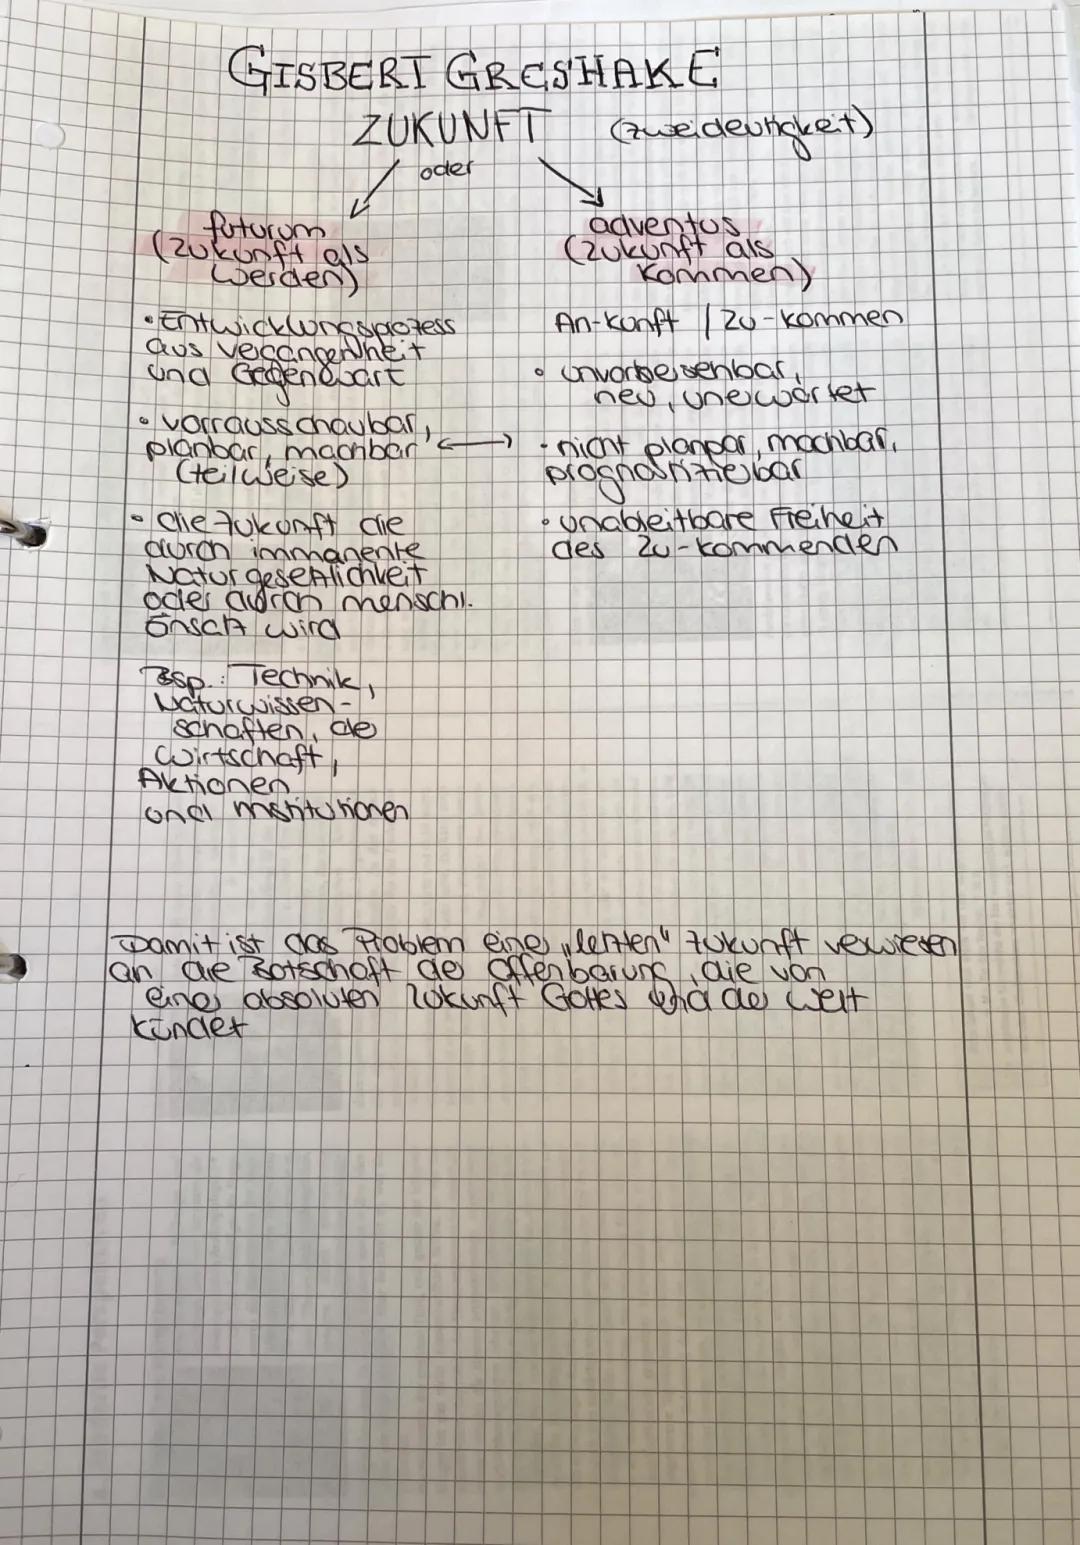 GISBERT GRESHAKE
ZUKUNFT (zweideutigkeit)
oder
futurum
(Zukunft als
Werden)
• Entwicklungsprozess
aus vegangenheit
und Gegenwart
• vorrausschaubar,
planbar, machbar ⟷
(teilweise)
• die Zukunft die
durch immanente
Naturgesetzlichkeit
oder durch menschl.
Einsatz wird
Bsp.: Technik,
Naturwissen-
schaften, die
Wirtschaft,
Aktionen
und Institutionen
adventus
(Zukunft als
Kommen)
An-kunft / Zu-kommen
• unvorhersehbar,
neu, unerwartet
• nicht planpar, machbar,
prognostizierbar
• unableitbare Freiheit
des Zu-kommenden
Damit ist das Problem einer „letzten" Zukunft verwiesen
an die Botschaft der Offenbarung, die von
einer absoluten Zukunft Gottes und der Welt
kündet